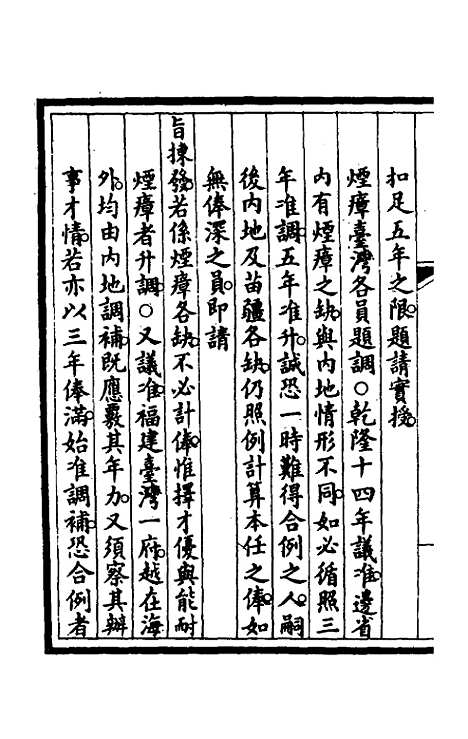 扣足五年之限。題請實授。
煙瘴臺灣各員題調○乾隆十四年議准。邊省
內有煙瘴之缺。與內地情形不同。如必循照三
年准調。五年准升。誠恐一時難得合例之人。嗣
後內地及苗疆各缺。仍照例計算本任之俸。如
無俸深之員。即請
旨揀發。若係煙瘴各缺。不必計俸。惟擇才優與能耐
煙瘴者升調。○又議准。福建臺灣一府。越在海
外。均由內地調補。既應覈其年力。又須察其辦
事才情。若亦以三年俸滿。始准調補。恐合例者